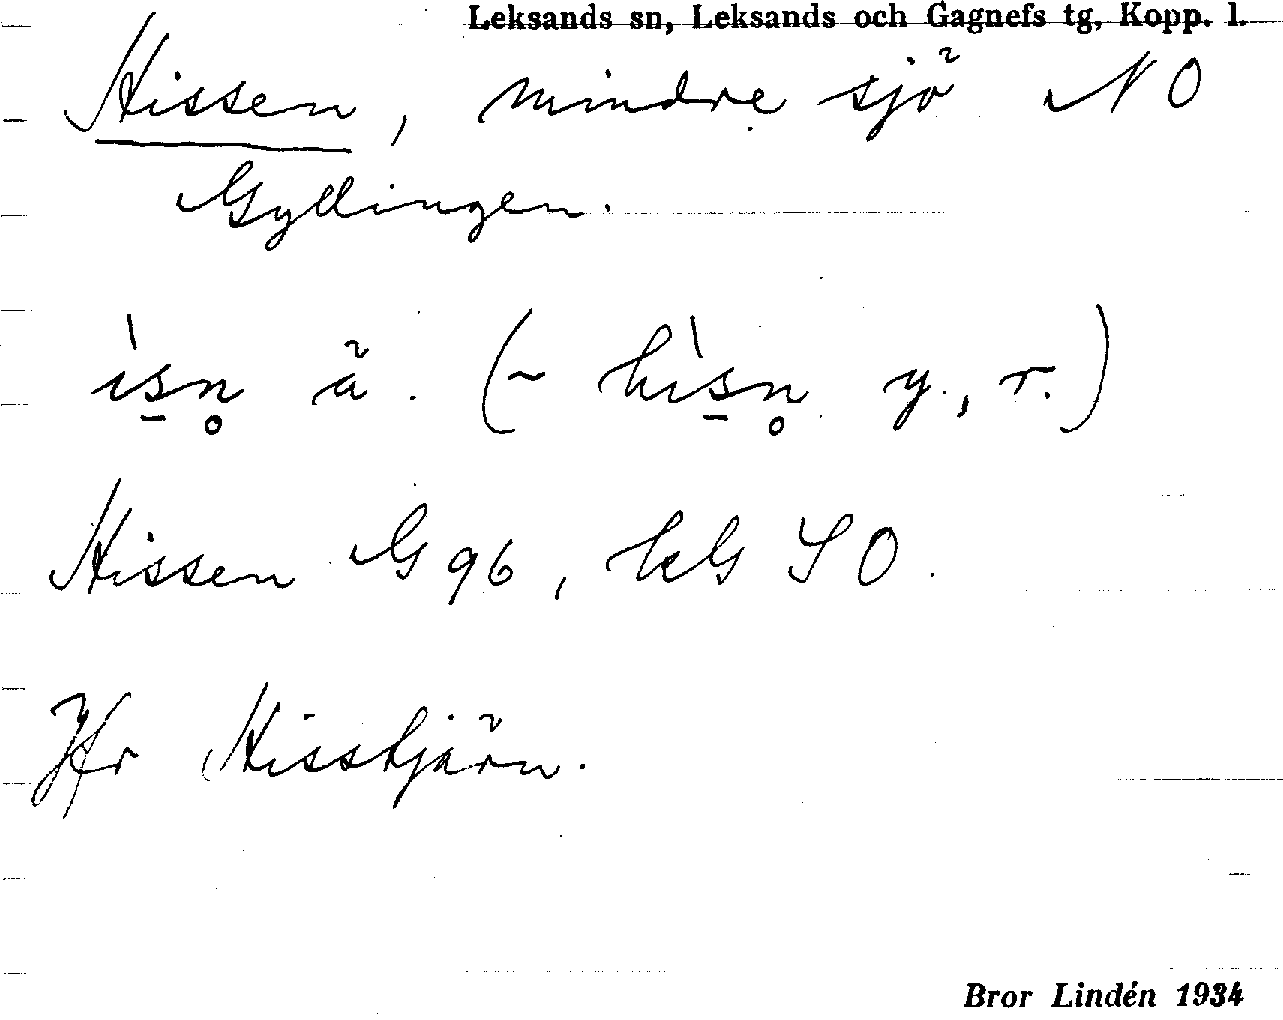 Leksands sn, Leksands och Gagnefs tg, Kopp. l.
Hissen, mindre sjö NO
Gyllingen.
ìs̲n̥ ä. (~ hìs̲n̥ y., r.)
Hissen G 96, kG SO.
Jfr Hisstjärn.
Bror Lindén 1934